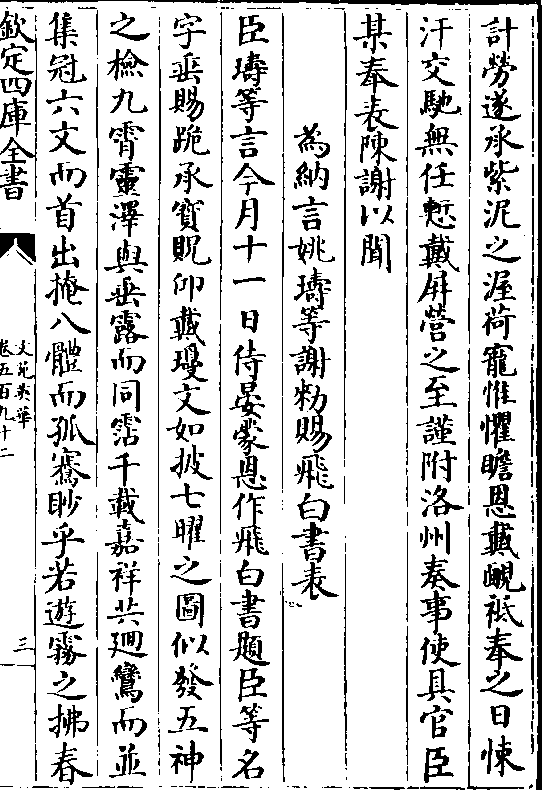 計勞遂承紫泥之渥荷寵惟懼瞻恩戴覥祗奉之日悚
汗交馳無任慙戴屏營之至謹附洛州奏事使具官臣
某奉表陳謝以聞
為納言姚璹等謝勑賜飛白書表
臣璹等言今月十一日侍宴蒙恩作飛白書題臣等名
字垂賜跪承寶貺仰戴瓊文如披七曜之圖似發五神
之檢九霄靈澤與垂露而同霑千載嘉祥共迴鸞而並
集冠六文而首出掩八體而孤騫眇乎若遊霧之拂春
欽定四庫全書
文苑英華
卷五百九十二
三